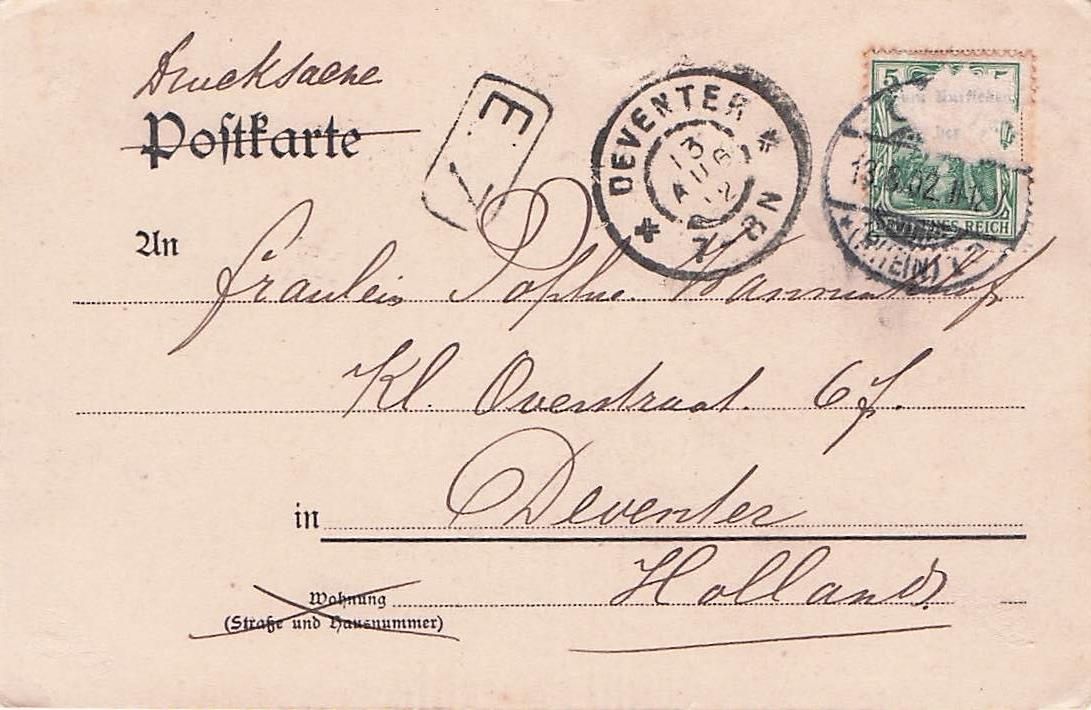 Drucksache
Postkarte
An
Fräulein Sophie
Kl. Overstraat. 67.
in Deventer
Holland.
Wohnung
(Straße und Hausnummer)
E
DEVENTER
13
AUG
8N
5
DEUTSCHES REICH
13.8.02.
(RHEIN)